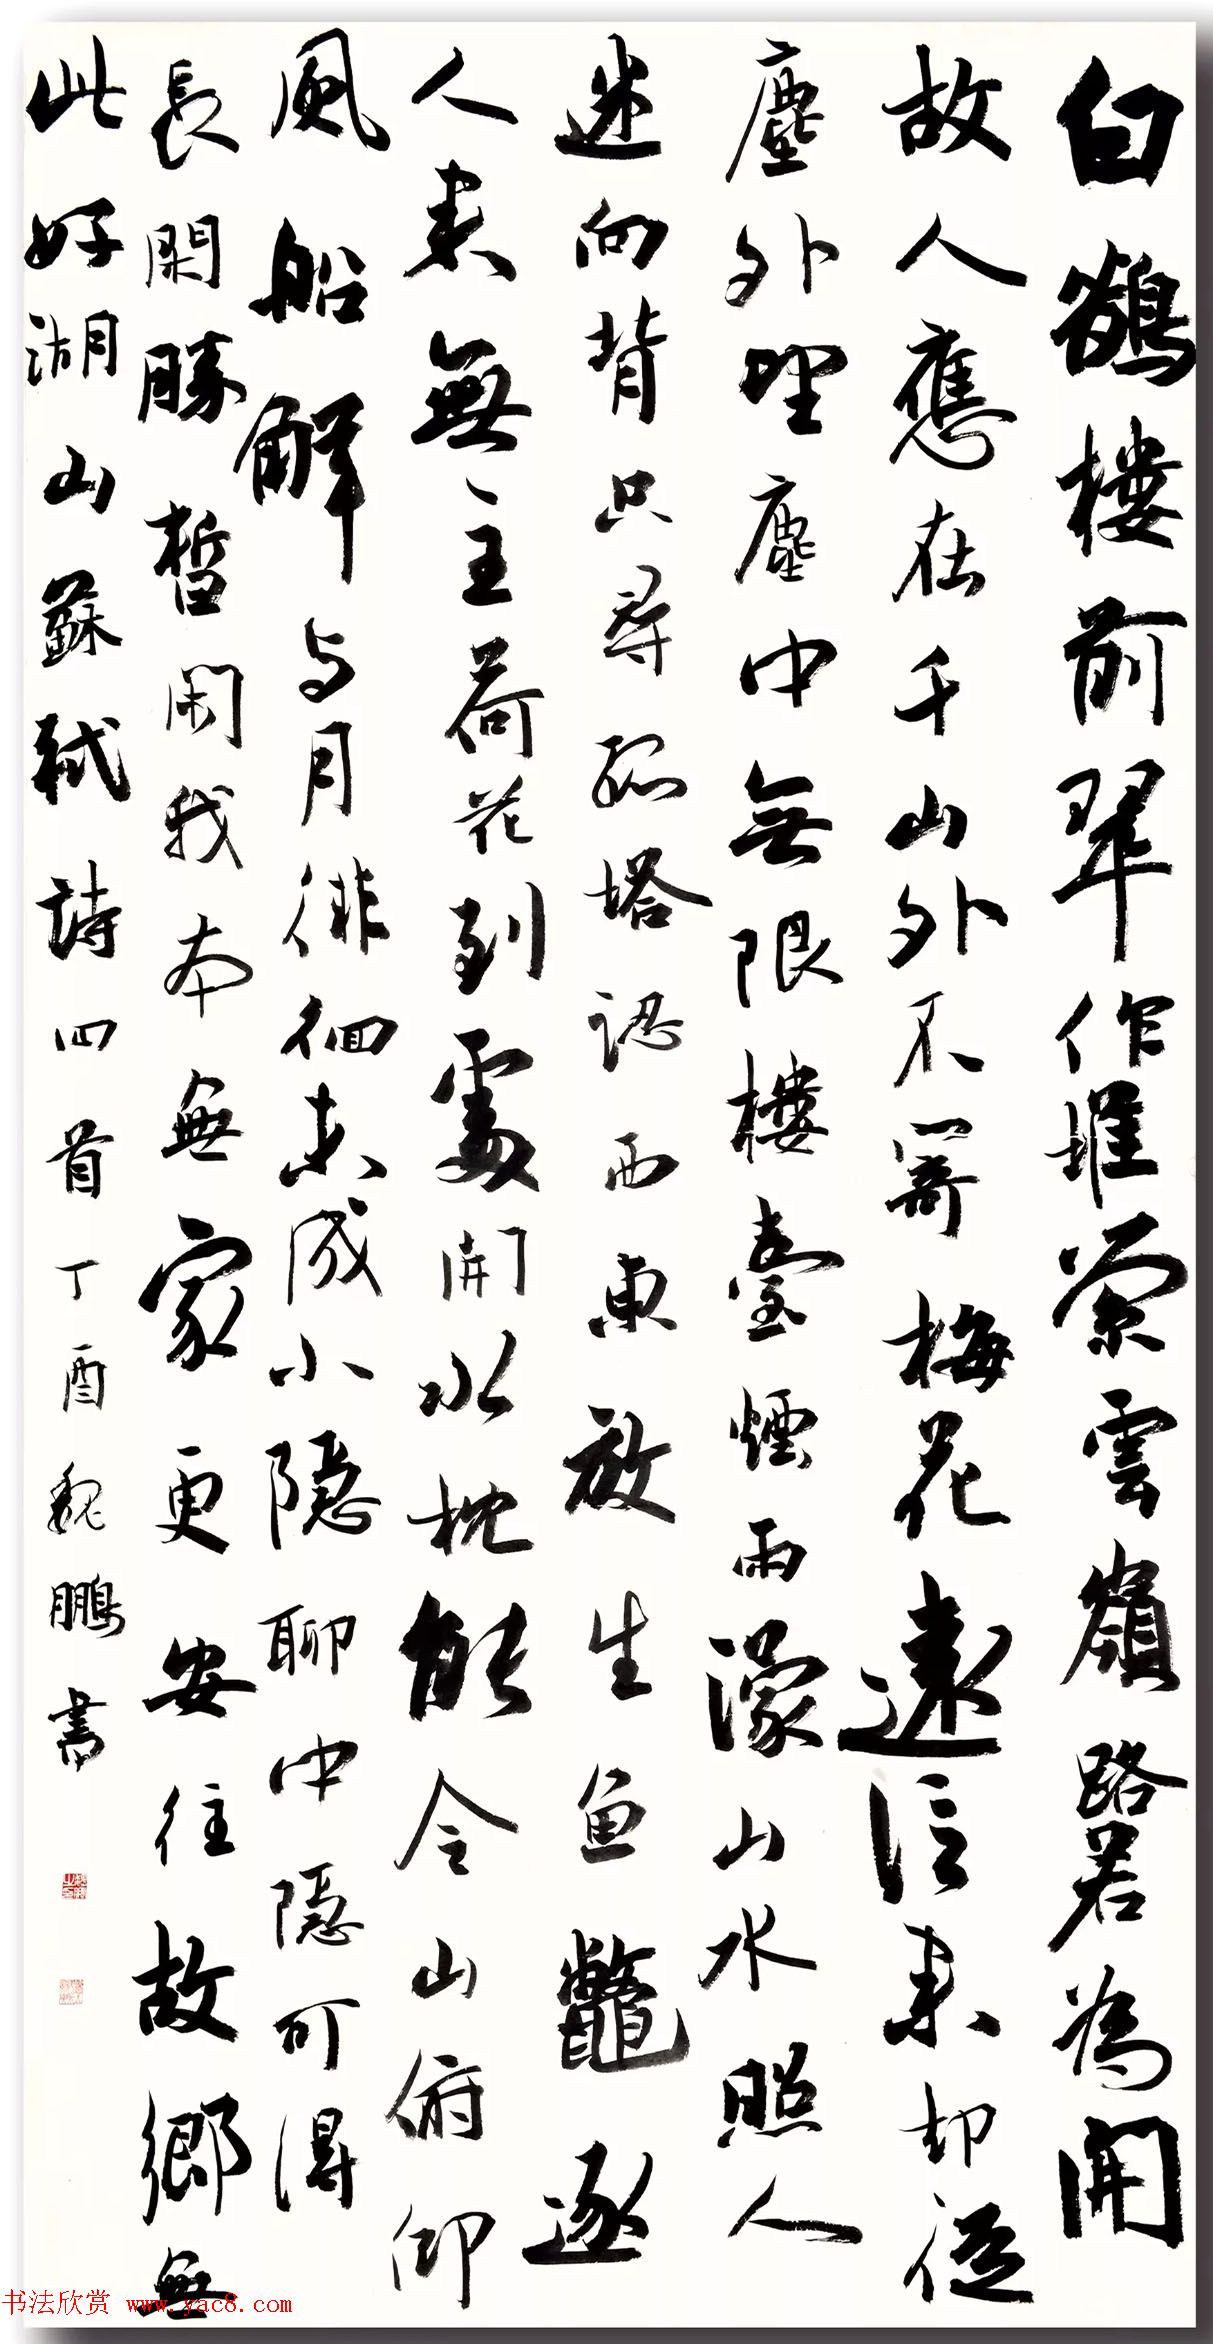 白鶴樓前翠作堆縈雲嶺路若為開
故人應在千山外不寄梅花遠信來却從
塵外望塵中無限樓臺煙雨濛山水照人
迷向背只尋孤塔認西東放生魚鱉逐
人來無主荷花到處開水枕能令山俯仰
風船解与月徘徊未成小隱聊中隱可得
長閑勝暫閑我本無家更安往故鄉無
此好湖山蘇軾詩四首丁酉魏鵬書
书法欣赏 www.yac8.com